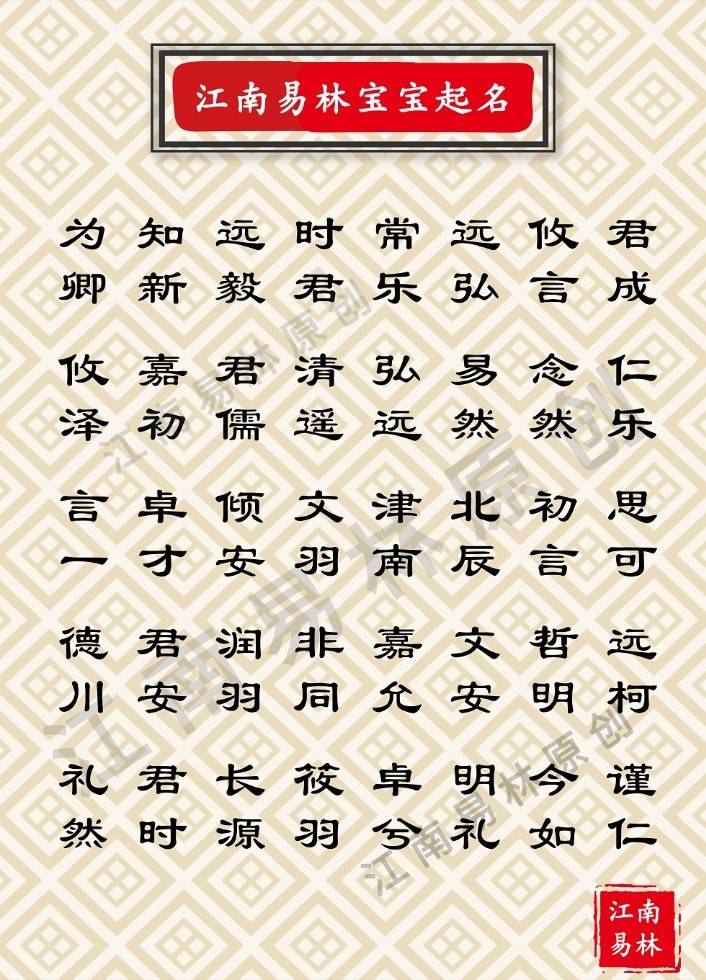 江南易林宝宝起名
为 知 远 时 常 远 攸 君
卿 新 毅 君 乐 弘 言 成
攸 嘉 君 清 弘 易 念 仁
泽 初 儒 遥 远 然 然 乐
言 卓 倾 文 津 北 初 思
一 才 安 羽 南 辰 言 可
德 君 润 非 嘉 文 哲 远
川 安 羽 同 允 安 明 柯
礼 君 长 筱 卓 明 今 谨
然 时 源 羽 兮 礼 如 仁
江南易林原创
江南易林原创
江南易林原创
江南
易林